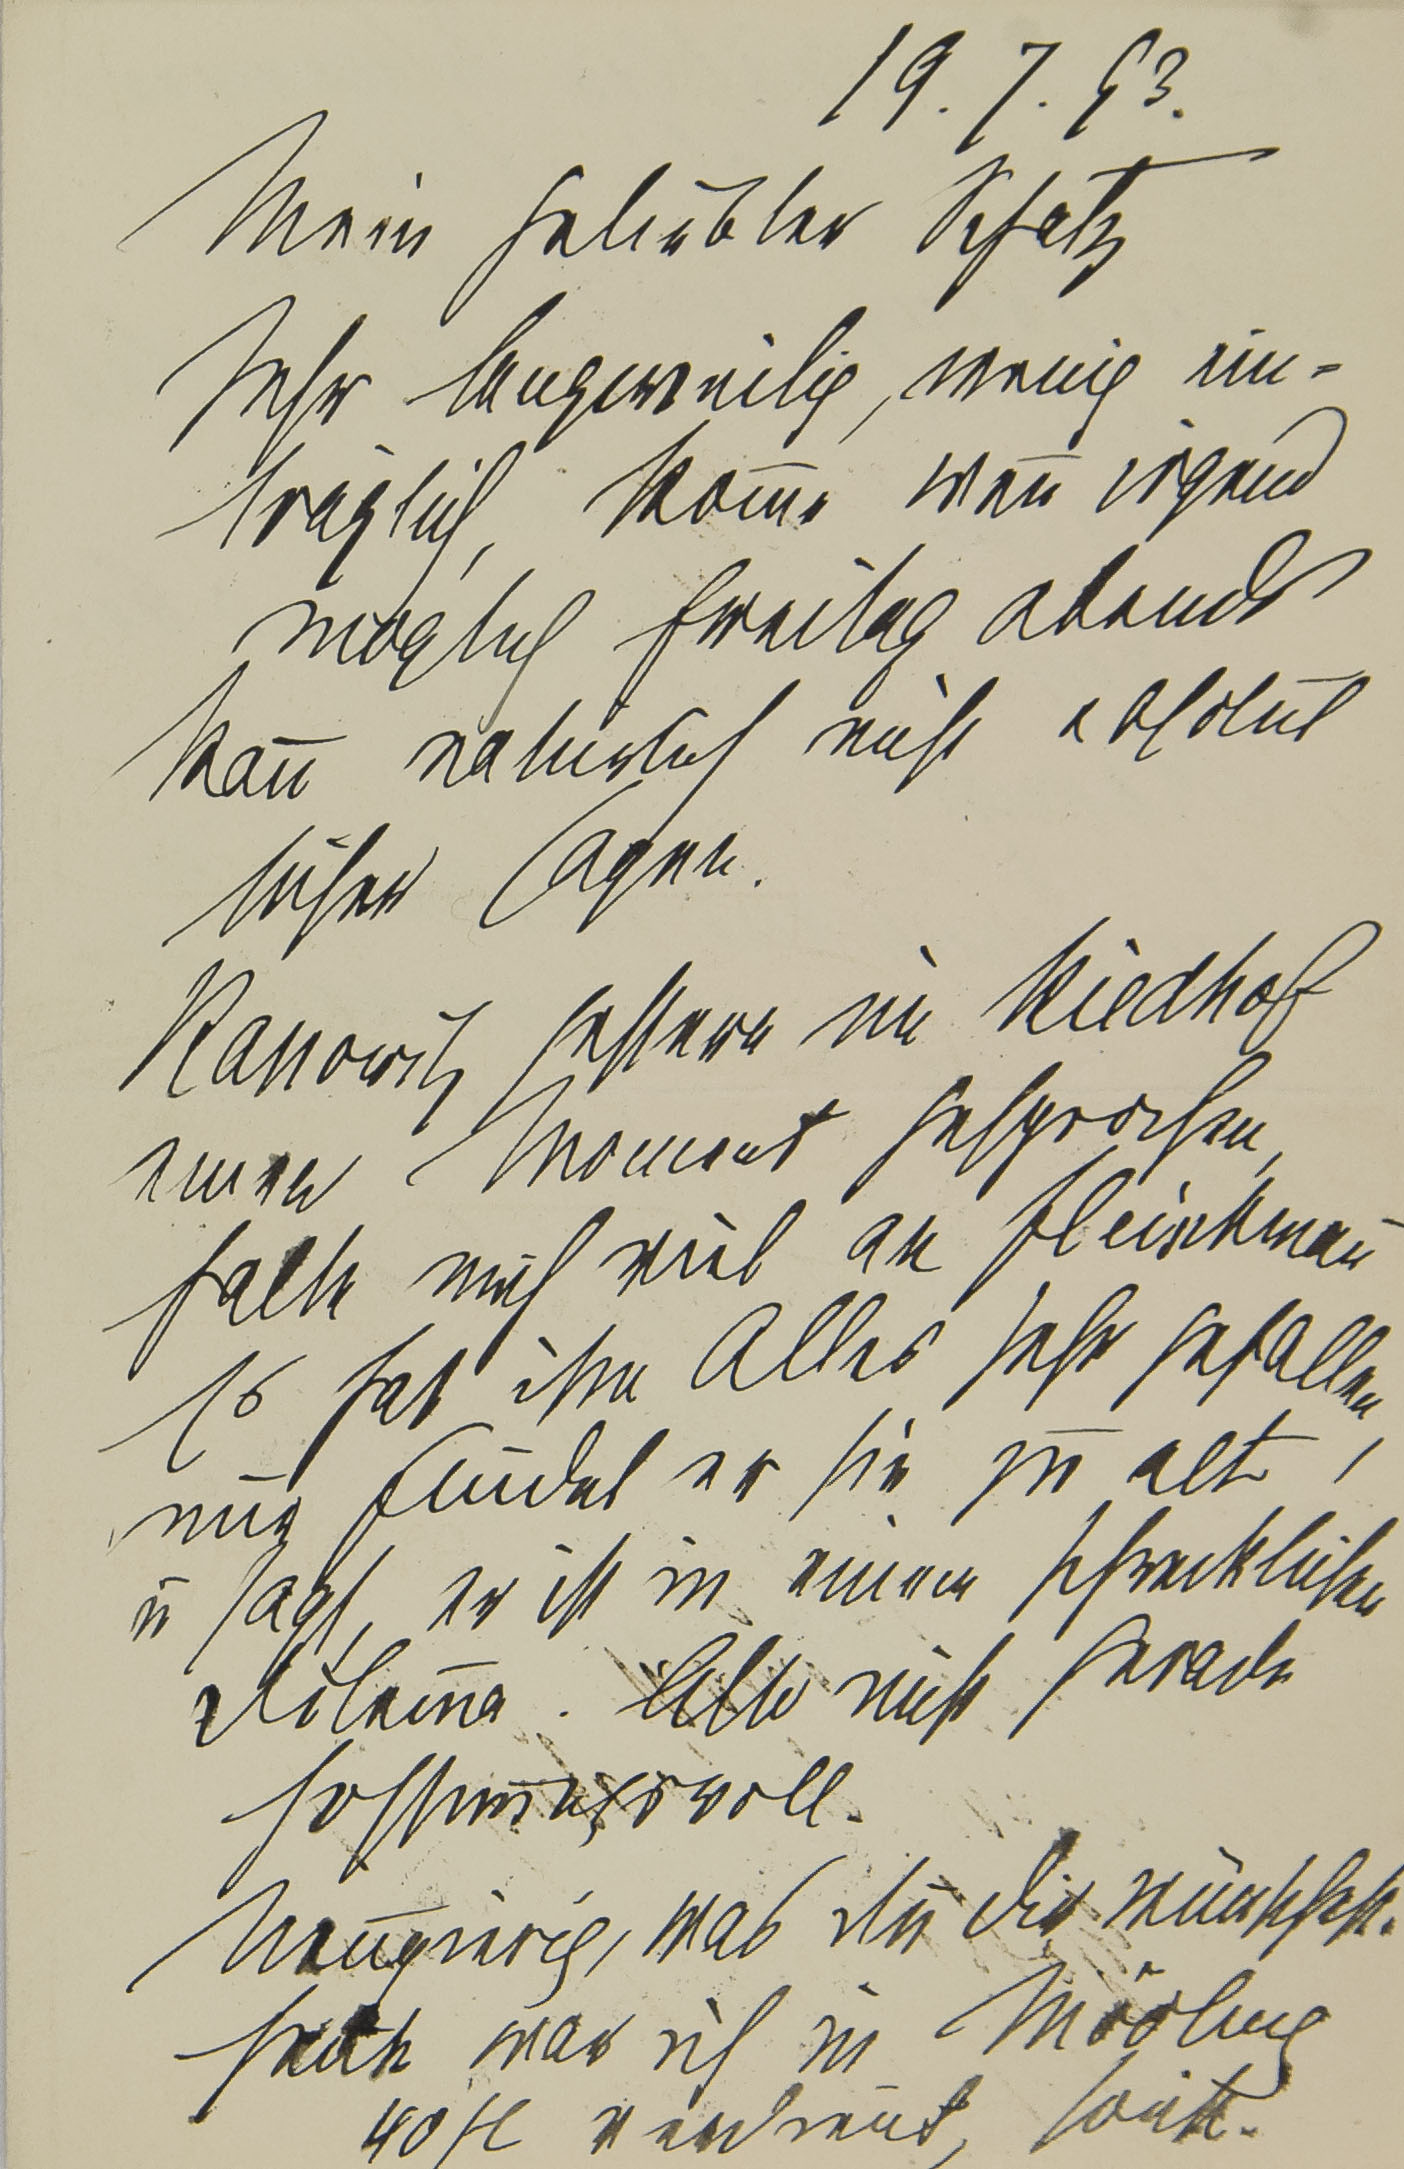 19. 7. 93.
Mein geliebter Schatz
Sehr langweilig, wenig ein-
träglich, kom̄e wen̄ irgend
möglich Freitag abends
Kan̄ natürlich nicht absolut
sicher sagen.
Kassowitz gestern im Riedhof
einen Moment gesprochen,
halte mich viel an Fleischman̄
Es hat ihm Alles sehr gefallen,
nur findet er sie zu alt,
u sagt, er ist in einem schrecklichen
Dilem̄a. Also nicht gerade
hoffnungsvoll.
Neugierig, was Du Dir wünschst.
Heute war ich in Mödling
40 fl verdient,